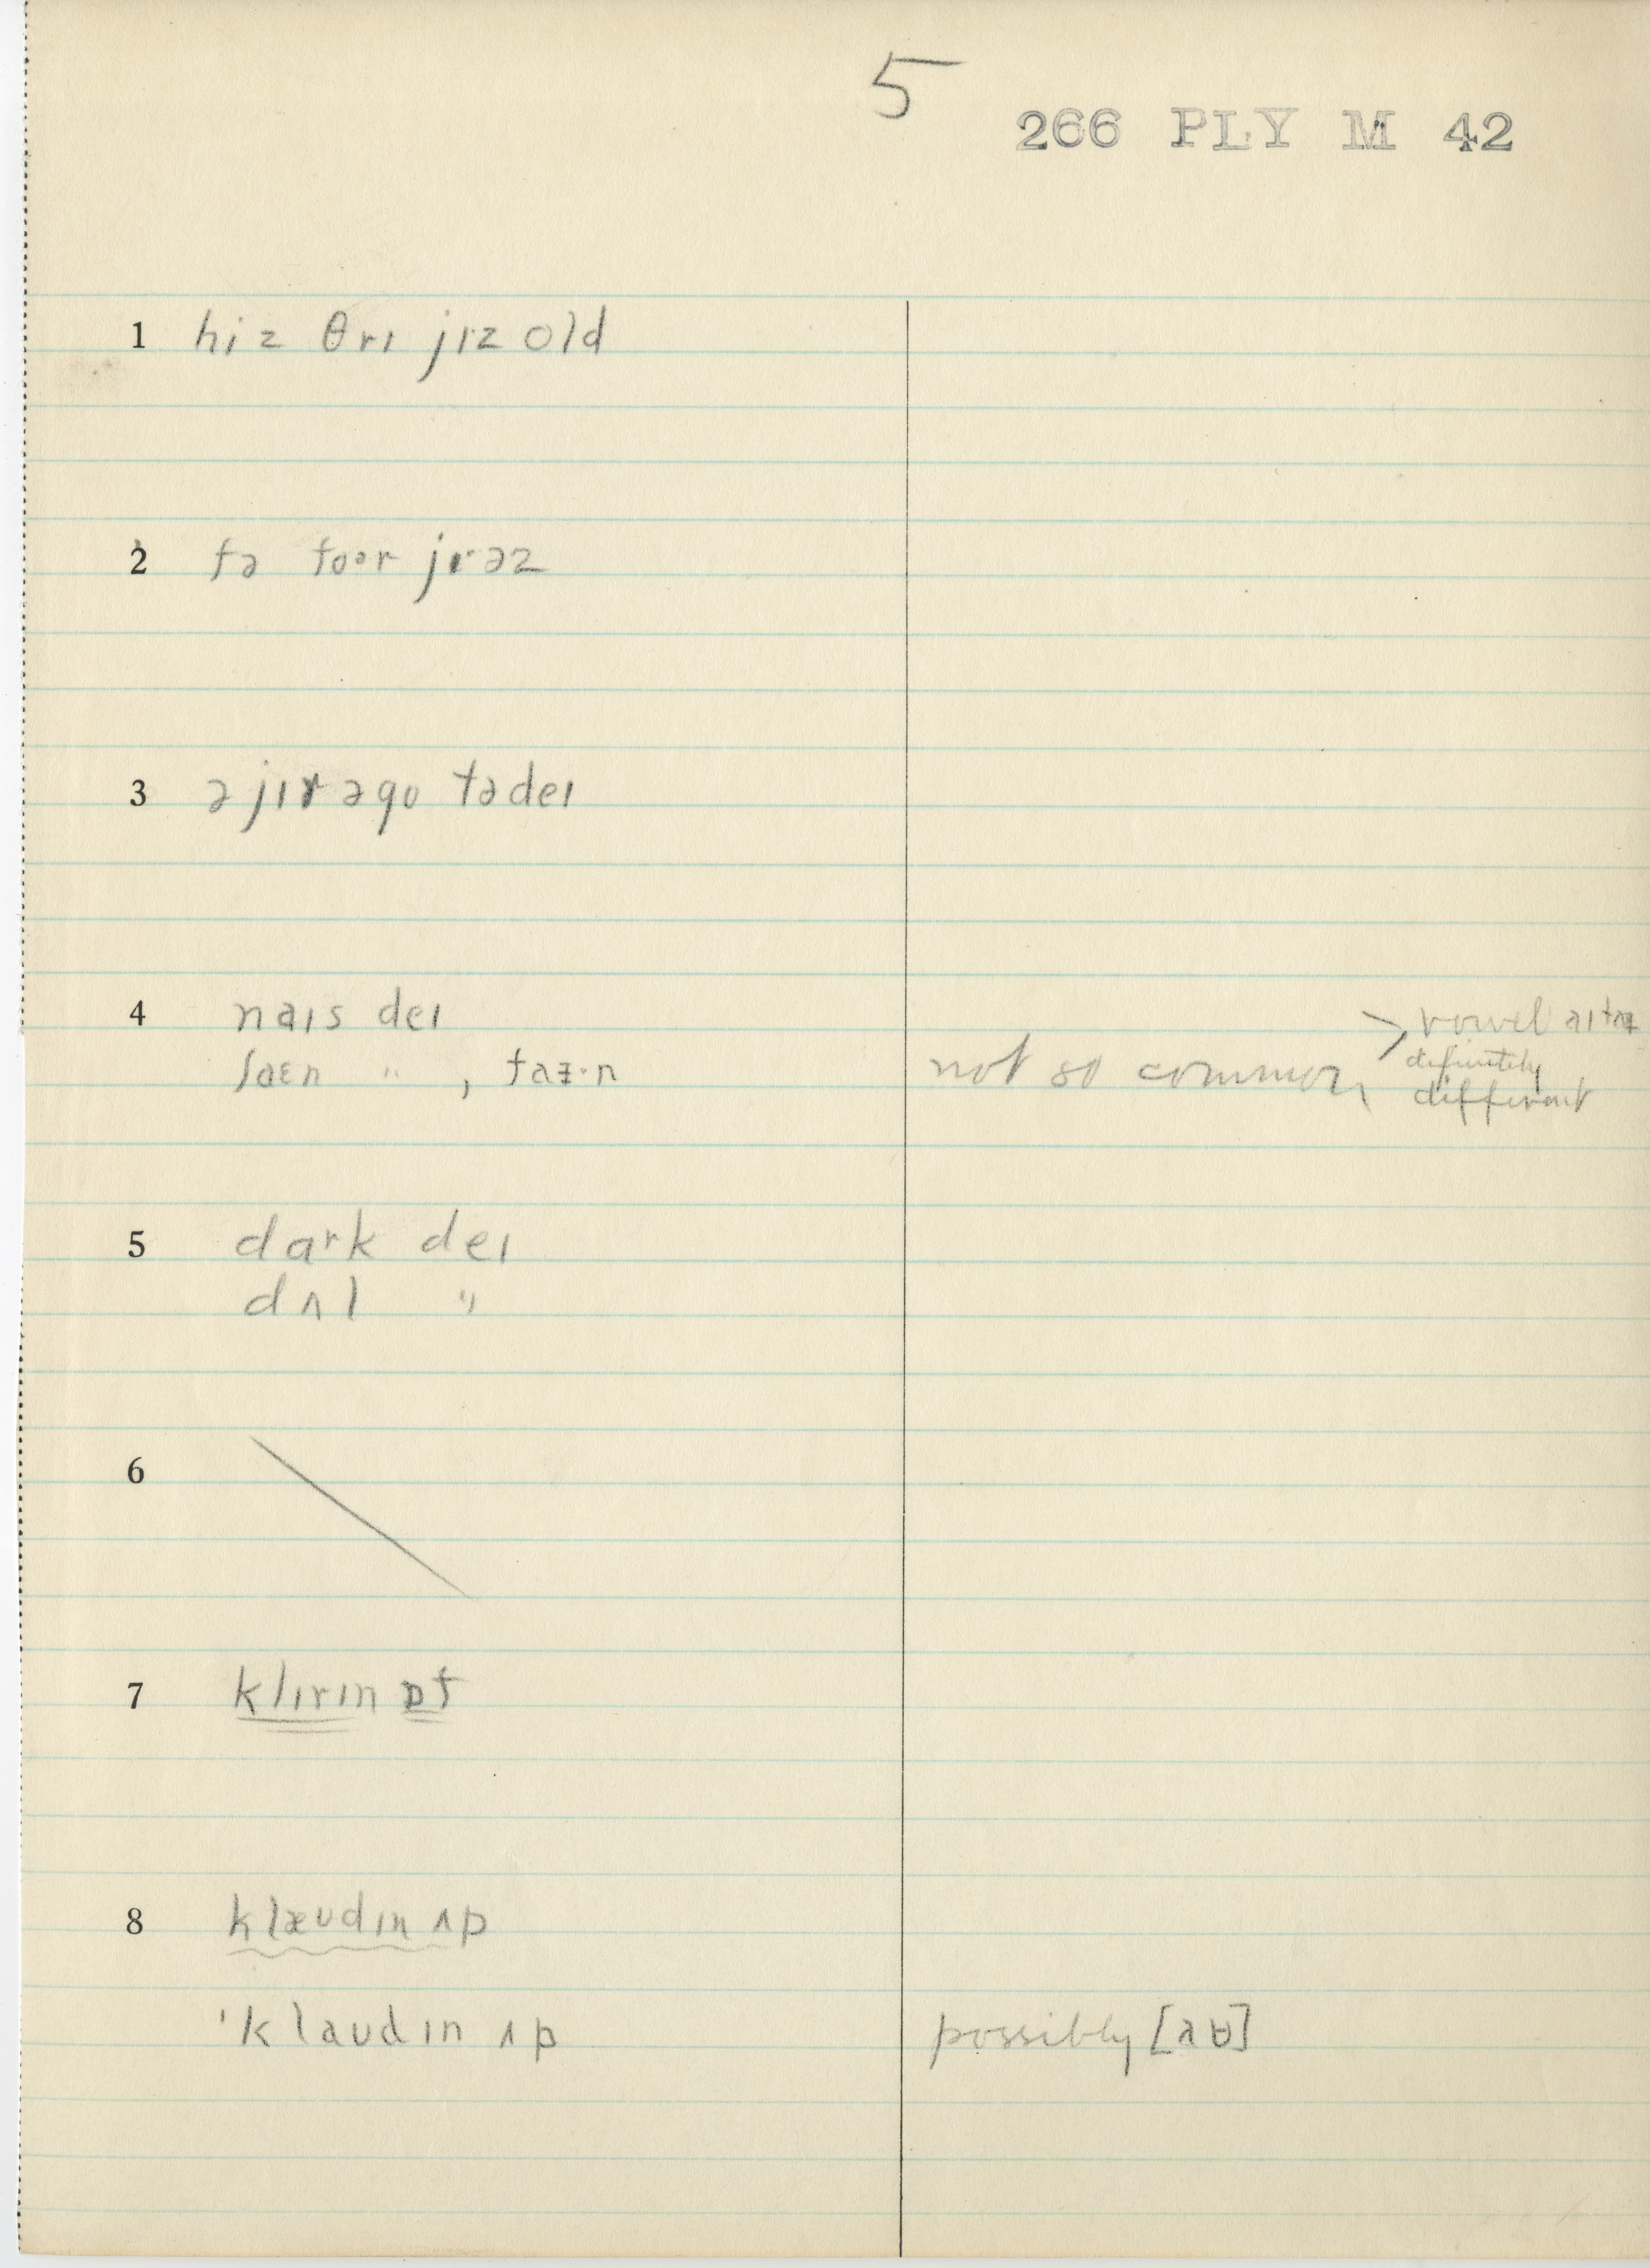 5
266 PLY M 42
1 hiz θrɪ jɪ·z old
2 fə foər jɪ·əz
3 ə jɪr əgʊ tədeɪ
4 naɪs deɪ
faɛn " , faᵻ·n
not so common > vowel
definitely
different
5 dark deɪ
dʌl "
6
7 klɪrɪn ɒf
8 klæʊdɪn ʌp
'klaʊdɪn ʌp possibly